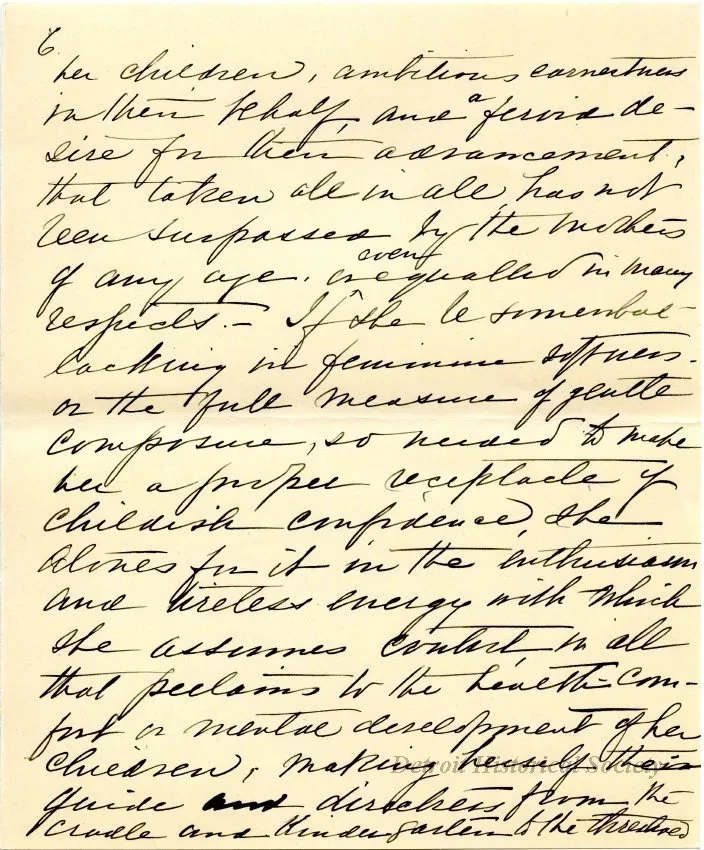 6.
her children, ambitious earnestness
in their behalf, and a fervid de-
sire for their advancement,
that taken all in all has not
been surpassed by the mothers
of any age, or even equalled in many
respects.- If she be somewhat
lacking in feminine softness.
or the full measure of gentle
composure, so needed to make
her a proper receptacle of
childish confidence, she
atones for it in the enthusiasm
and tireless energy with which
she assumes control, in all
that pertains to the health-com-
fort or mental development of her
children, making herself their
guide and directress from the
cradle and Kindergarten to the threshold
Detroit Historical Society